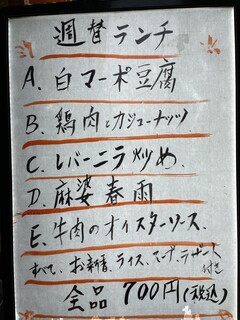 週替ランチ
A. 白マーボ豆腐
B. 鶏肉とカシューナッツ
C. レバーニラ炒め.
D. 麻婆春雨
E. 牛肉のオイスターソース.
すべて、お新香、ライス、スープ、デザート付き
全品 700円(税込)